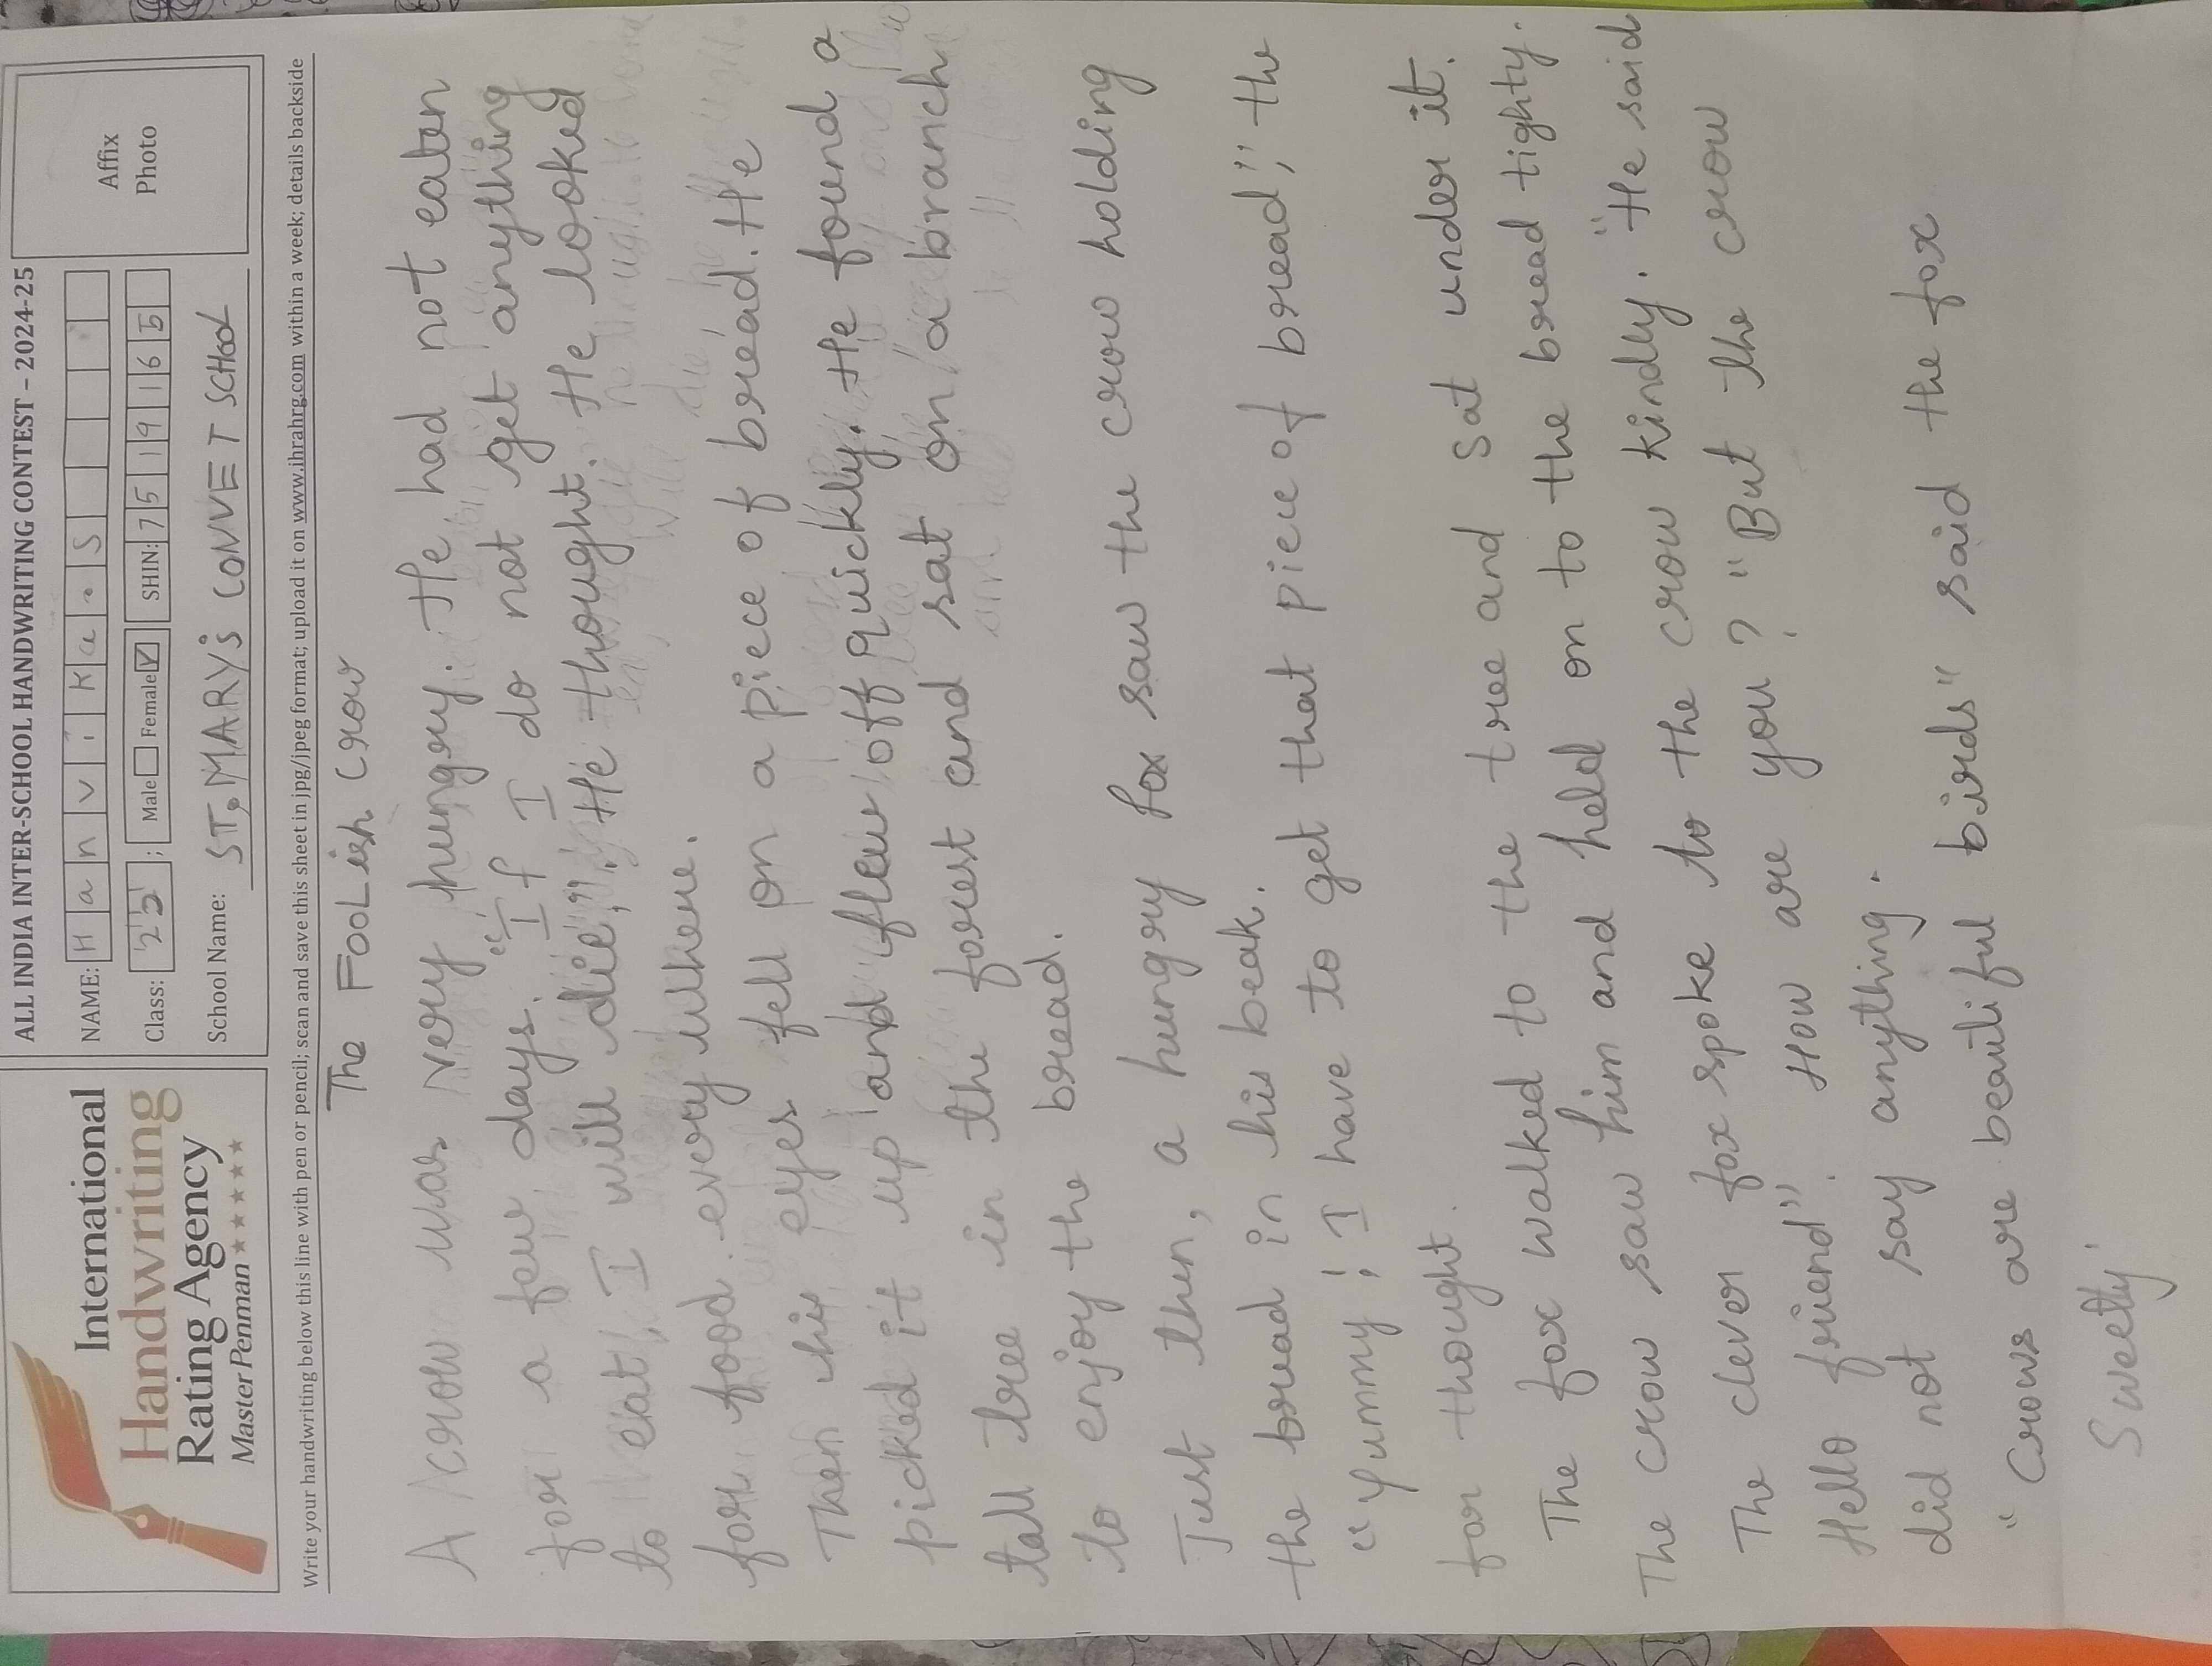 International
Handwriting
Rating Agency
Master Penman
ALL INDIA INTER-SCHOOL HANDWRITING CONTEST - 2024-25
NAME: Hanvika.S
Class: 2 ; Male Female SHIN: 75191665
School Name: ST.MARYS CONVET SCHOOL
Affix
Photo
Write your handwriting below this line with pen or pencil; scan and save this sheet in jpg/jpeg format; upload it on www.ihrahrg.com within a week; details backside
The FooLish Crow
A crow was very hungry. He had not eaten
for a few days. "If I do not get anything
to eat, I will die," He thought. He looked
for food every where.
Then his eyes fell on a piece of bread. He
picked it up and flew off quickly. He found a
tall tree in the forest and sat on a branch
to enjoy the bread.
Just then, a hungry fox saw the crow holding
the bread in his beak.
"Yummy ; I have to get that piece of bread", the
for thought.
The fox walked to the tree and sat under it.
The crow saw him and held on to the bread tighty.
The clever fox spoke to the crow kindly. "He said
Hello friend". How are you? "But the crow
did not say anything.
"Crows are beautiful birds" said the fox
Sweetly.